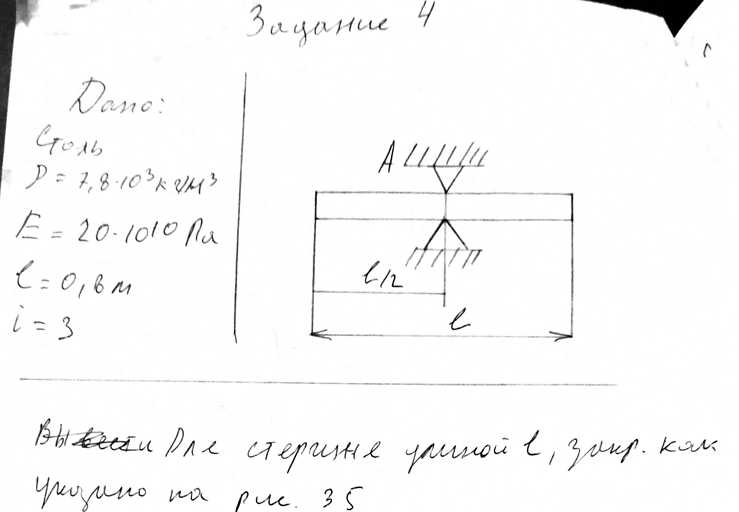 Задание 4
Дано:
Сталь
ρ = 7,8·10³ кг/м³
E = 20·10¹⁰ Па
l = 0,8 м
i = 3
A
l/2
l
Для стержня длиной l, закр. как
указано на рис. 35